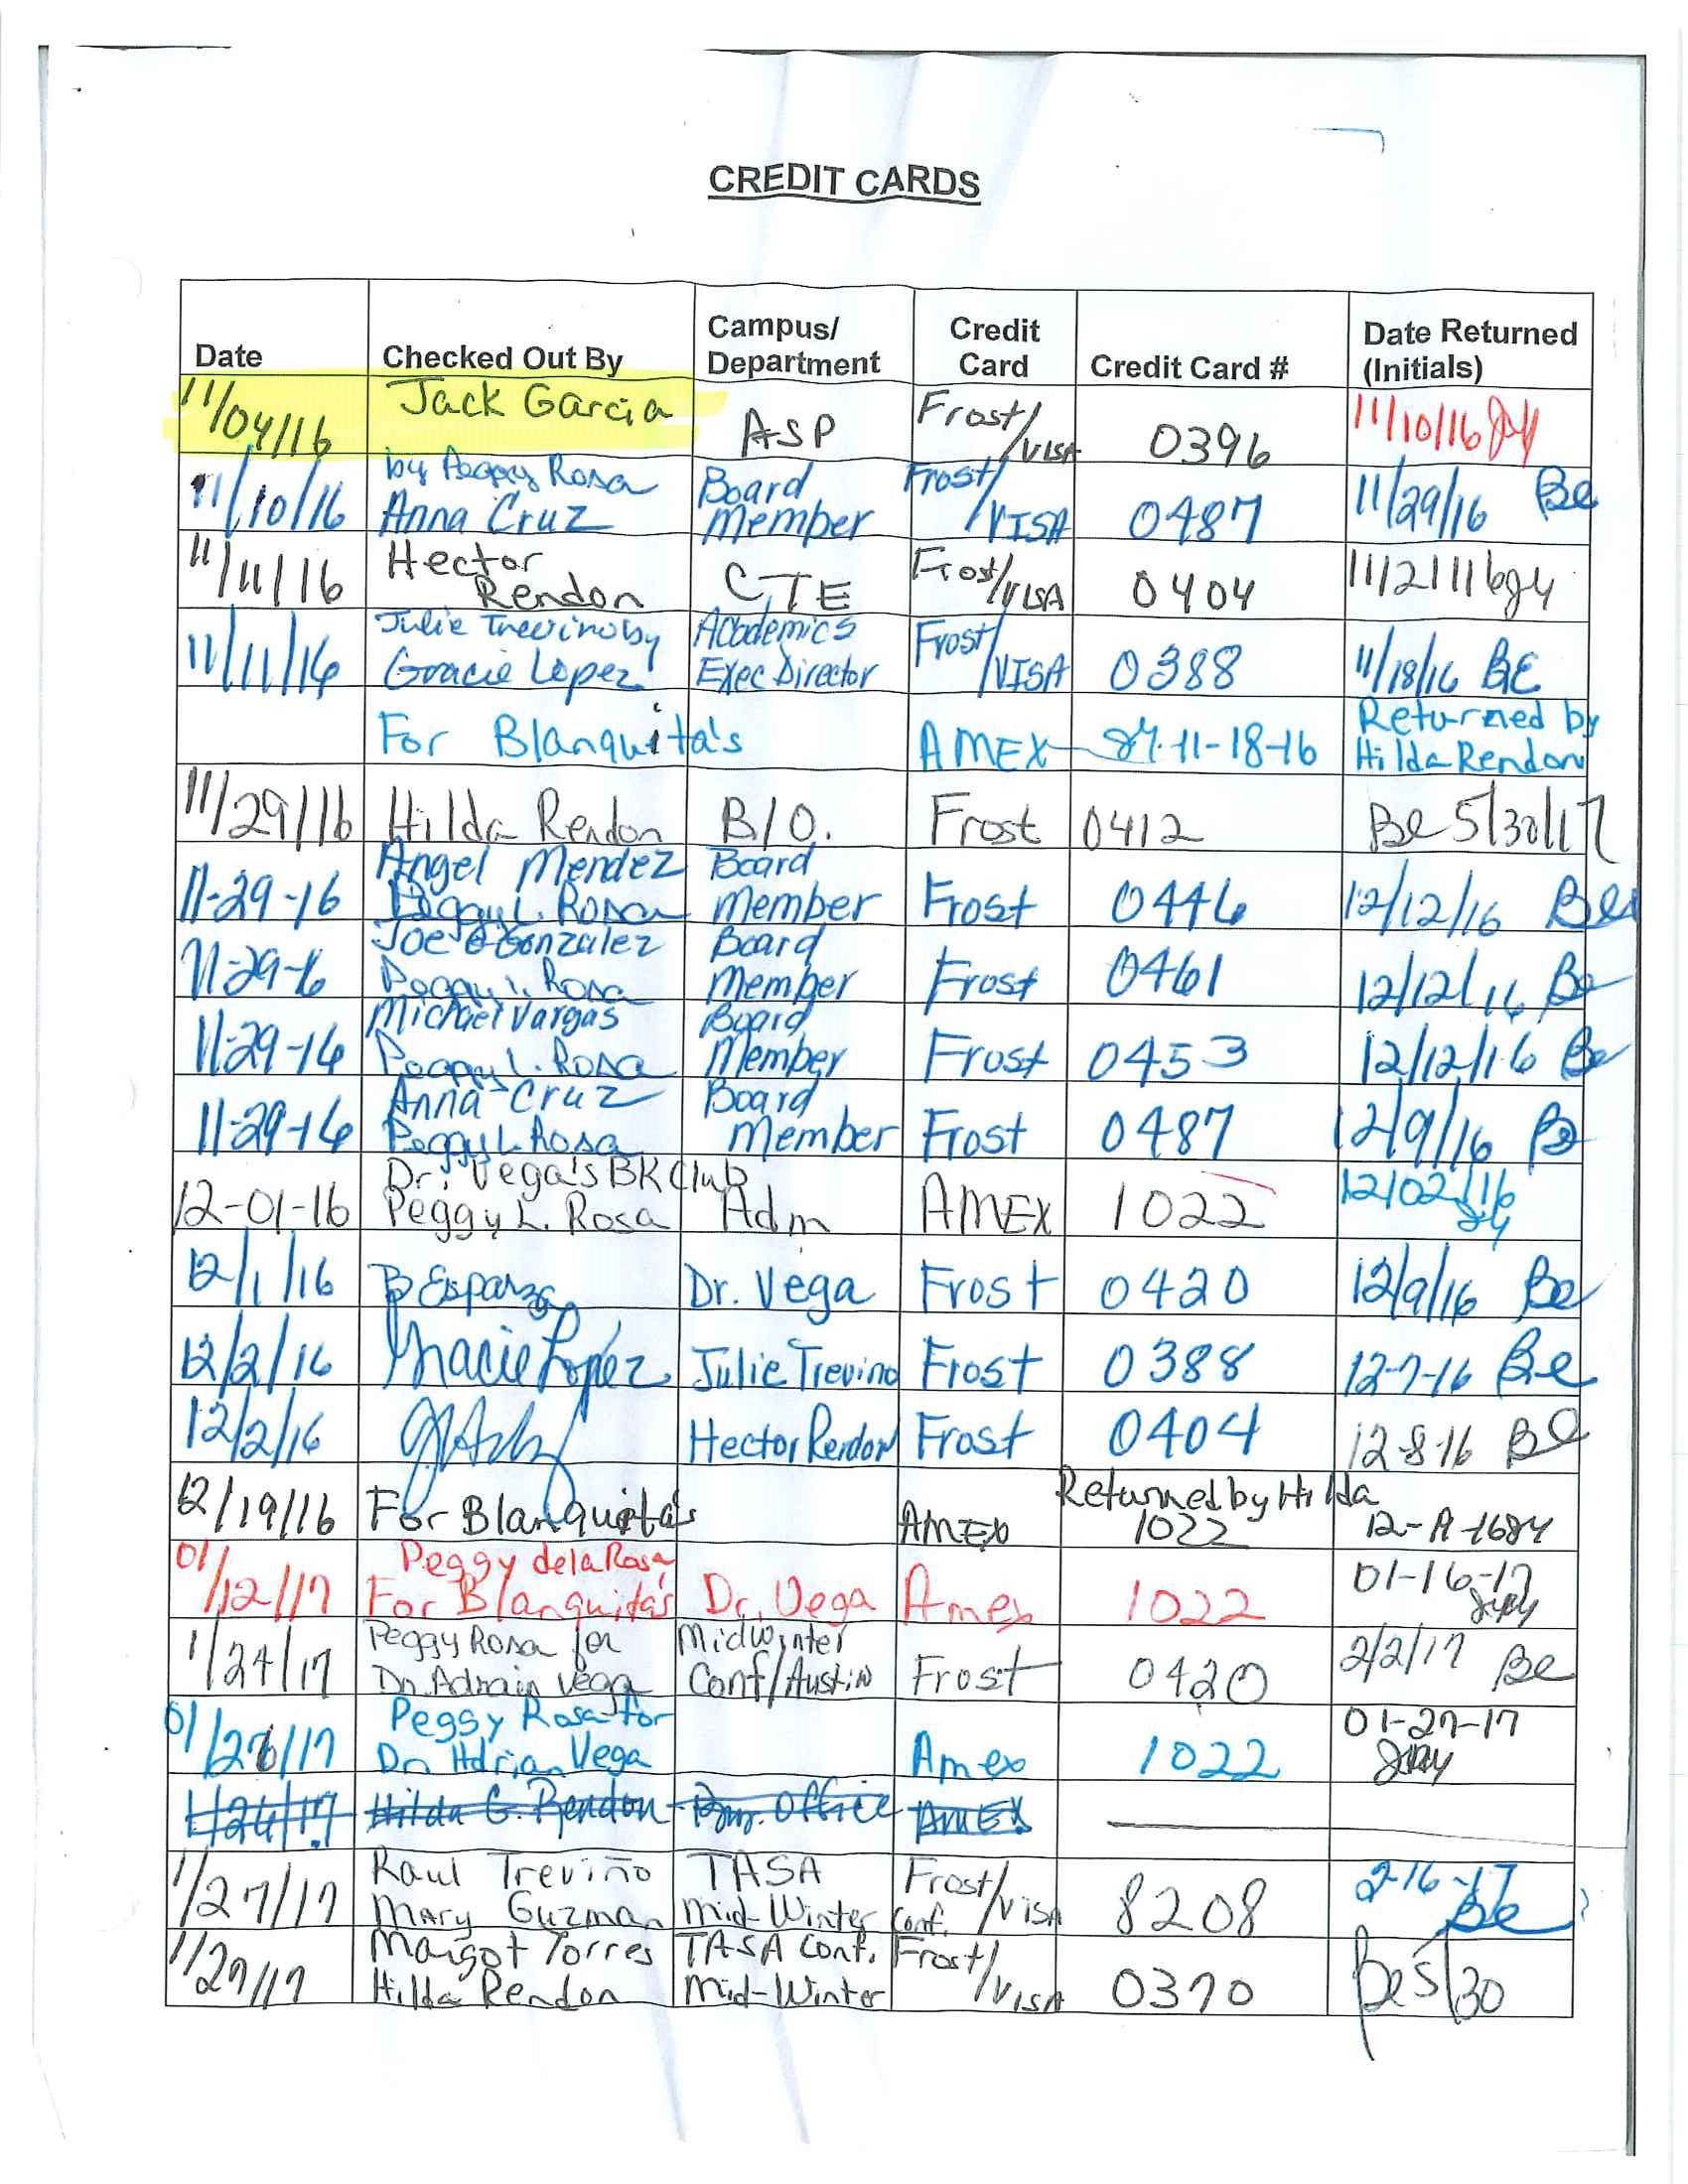 CREDIT CARDS
Date Checked Out By Campus/ Department Credit Card Credit Card # Date Returned (Initials)
11/04/16 Jack Garcia ASP Frost/VISA 0396 11/10/16
by Peggy Rosa Board Frost/
11/10/16 Anna Cruz Member VISA 0487 11/29/16 Be
11/11/16 Hector Rendon CTE Frost/VISA 0404 11/21/16
Julie Trevino by Academics Frost/
11/11/16 Gracie Lopez Exec Director VISA 0388 11/18/16 BE
For Blanquita's AMEX 11-18-16 Returned by
Hilda Rendon
11/29/16 Hilda Rendon B/O. Frost 0412 Be 5/30/17
Angel Mendez Board
11-29-16 Peggy L. Rosa Member Frost 0446 12/12/16 Be
Joe Gonzalez Board
11-29-16 Peggy L. Rosa Member Frost 0461 12/12/16 Be
Michael Vargas Board
11-29-16 Peggy L. Rosa Member Frost 0453 12/12/16 Be
Anna Cruz Board
11-29-16 Peggy L. Rosa Member Frost 0487 12/9/16 Be
Dr. Vega's BK Club
12-01-16 Peggy L. Rosa Adm AMEX 1022 12/02/16
12/1/16 B Esparza Dr. Vega Frost 0420 12/9/16 Be
12/2/16 Gracie Lopez Julie Trevino Frost 0388 12-7-16 Be
12/2/16 Hector Rendon Frost 0404 12-8-16 Be
Returned by Hilda
12/19/16 For Blanquita's AMEX 1022
01/12/17 Peggy dela Rosa
For Blanquita's Dr. Vega Amex 1022 01-16-17
Peggy Rosa for Midwinter
1/24/17 Dr. Adrain Vega Conf/Austin Frost 0420 2/2/17 Be
Peggy Rosa for 01-27-17
01/26/17 Dr. Adrian Vega Amex 1022
1/26/17 Hilda G. Rendon Office AMEX
Raul Treviño TASA Frost/ 2-16-17
1/27/17 Mary Guzman Mid-Winter Conf. VISA 8208 Be
Margot Torres TASA Conf. Frost/
1/27/17 Hilda Rendon Mid-Winter VISA 0370 Be 5/30